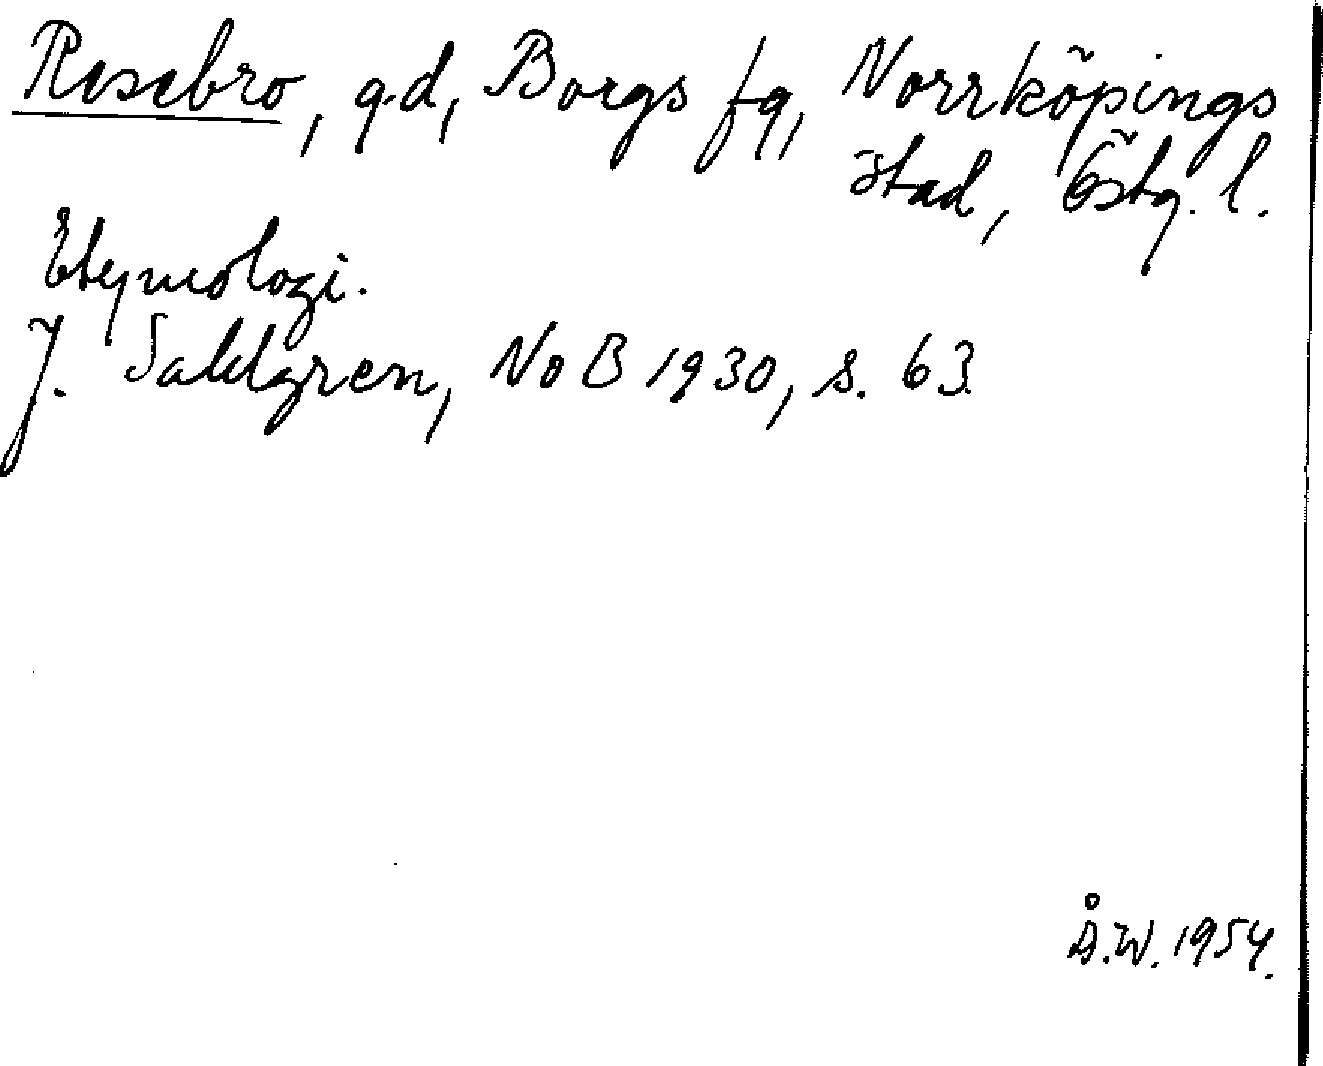 Resebro, gd, Borgs fg, Norrköpings
stad, Östg. l.
Etymologi.
J. Sahlgren, NoB 1930, s. 63.
Å.W. 1954.